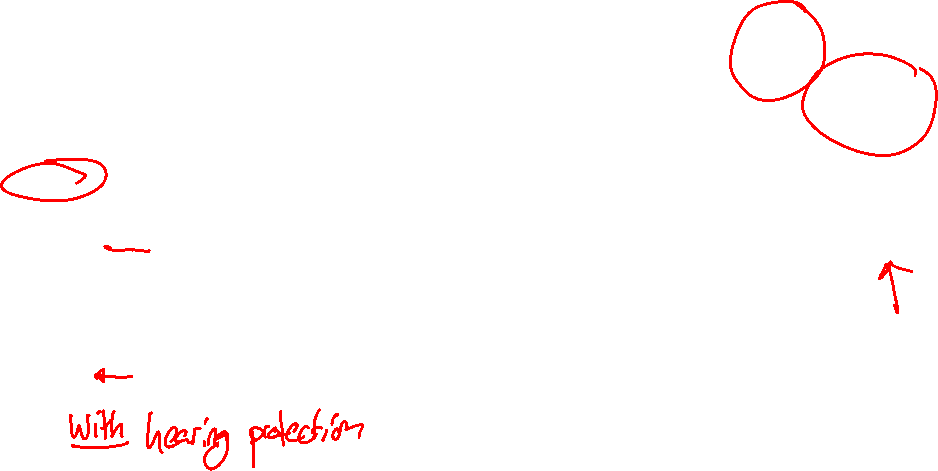 With hearing protection